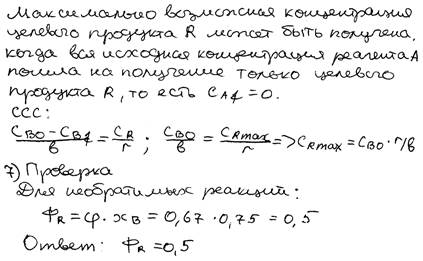 Максимально возможная концентрация
целевого продукта R может быть получена,
когда вся исходная концентрация реагента A
пошла на получение только целевого
продукта R, то есть C_Af = 0.
ССС:
(C_B0 - C_Bf)/в = C_R/r ; C_B0/в = C_Rmax/r => C_Rmax = C_B0 · r/в
7) Проверка
Для необратимых реакций:
Ф_R = φ · x_B = 0,67 · 0,75 = 0,5
Ответ: Ф_R = 0,5